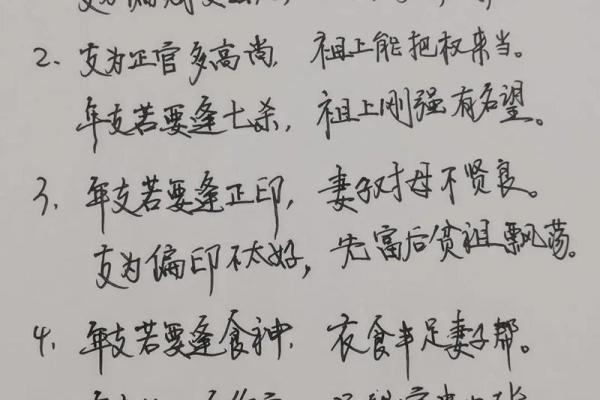 支为偏财
2、支为正官多高尚, 祖上能把权来当。
年支若要逢七杀, 祖上刚强有名望。
3、年支若要逢正印, 妻子对母不贤良。
支为偏印不太好, 先富后贫祖飘荡。
4、年支若要逢食神, 衣食丰足妻子帮。